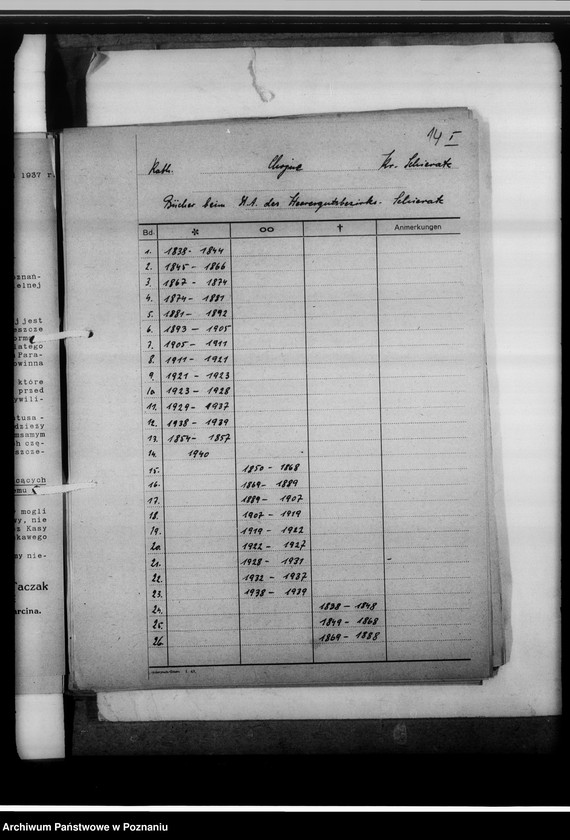 1937 r.
znań-
elnej
j jest
eszcze
latego
Para-
owinna
które
przed
ywili-
tusa -
dzieży
msamym
h czę-
szcze-
cących
emu
mogli
wy, nie
z Kasy
kawego
sy nie-
Taczak
arcina.
14 I
Kath. Chojne Kr. Schieratz
Bücher beim St.A. des Heeresgutsbezirks. Schieratz
Bd. * ∞ † Anmerkungen
1. 1838 - 1844
2. 1845 - 1866
3. 1867 - 1874
4. 1874 - 1881
5. 1881 - 1892
6. 1893 - 1905
7. 1905 - 1911
8. 1911 - 1921
9. 1921 - 1923
10. 1923 - 1928
11. 1929 - 1937
12. 1938 - 1939
13. 1854 - 1857
14. 1940
15. 1850 - 1868
16. 1869 - 1889
17. 1889 - 1907
18. 1907 - 1919
19. 1919 - 1922
20. 1922 - 1927
21. 1928 - 1931
22. 1932 - 1937
23. 1938 - 1939
24. 1838 - 1848
25. 1849 - 1868
26. 1869 - 1888
Archiwum Państwowe w Poznaniu